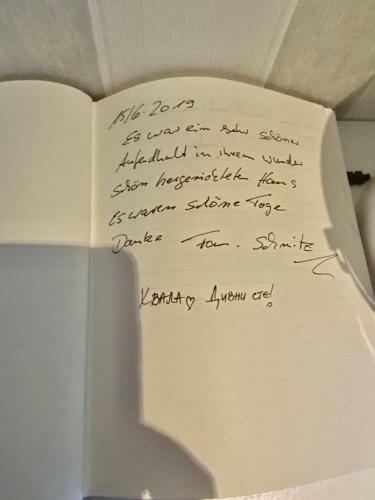 15/6.2019
Es war ein sehr schöner
Aufendhalt in ihrem wunder
schön hergerichteten Haus
es waren schöne Tage
Danke Fam. Schmitz
ХВАЛА♡ ДИВНИ СТЕ!